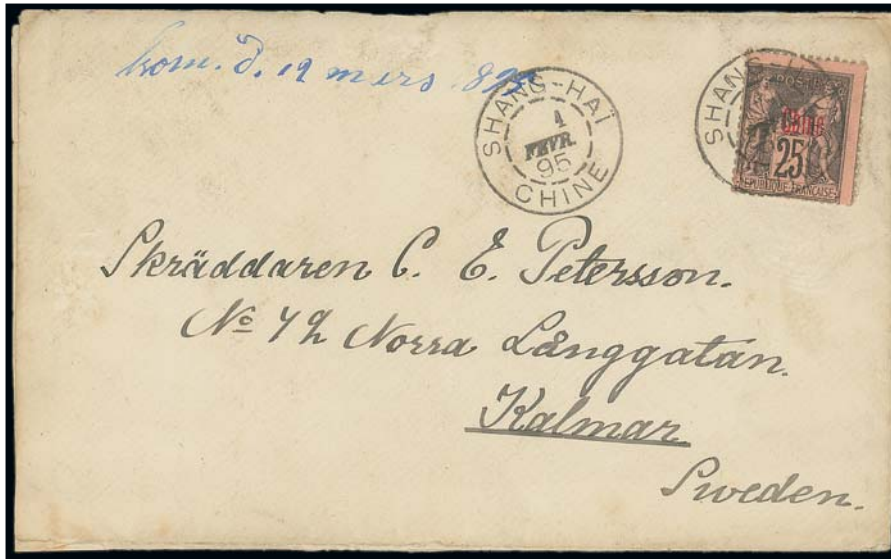 kom. d. 19 mars 895
SHANG-HAÏ
1
FEVR.
95
CHINE
SHANG-HAÏ
POSTES
Chine
25
REPUBLIQUE FRANCAISE
Skräddaren C. E. Petersson.
No 42 Norra Långgatan.
Kalmar
Sweden.